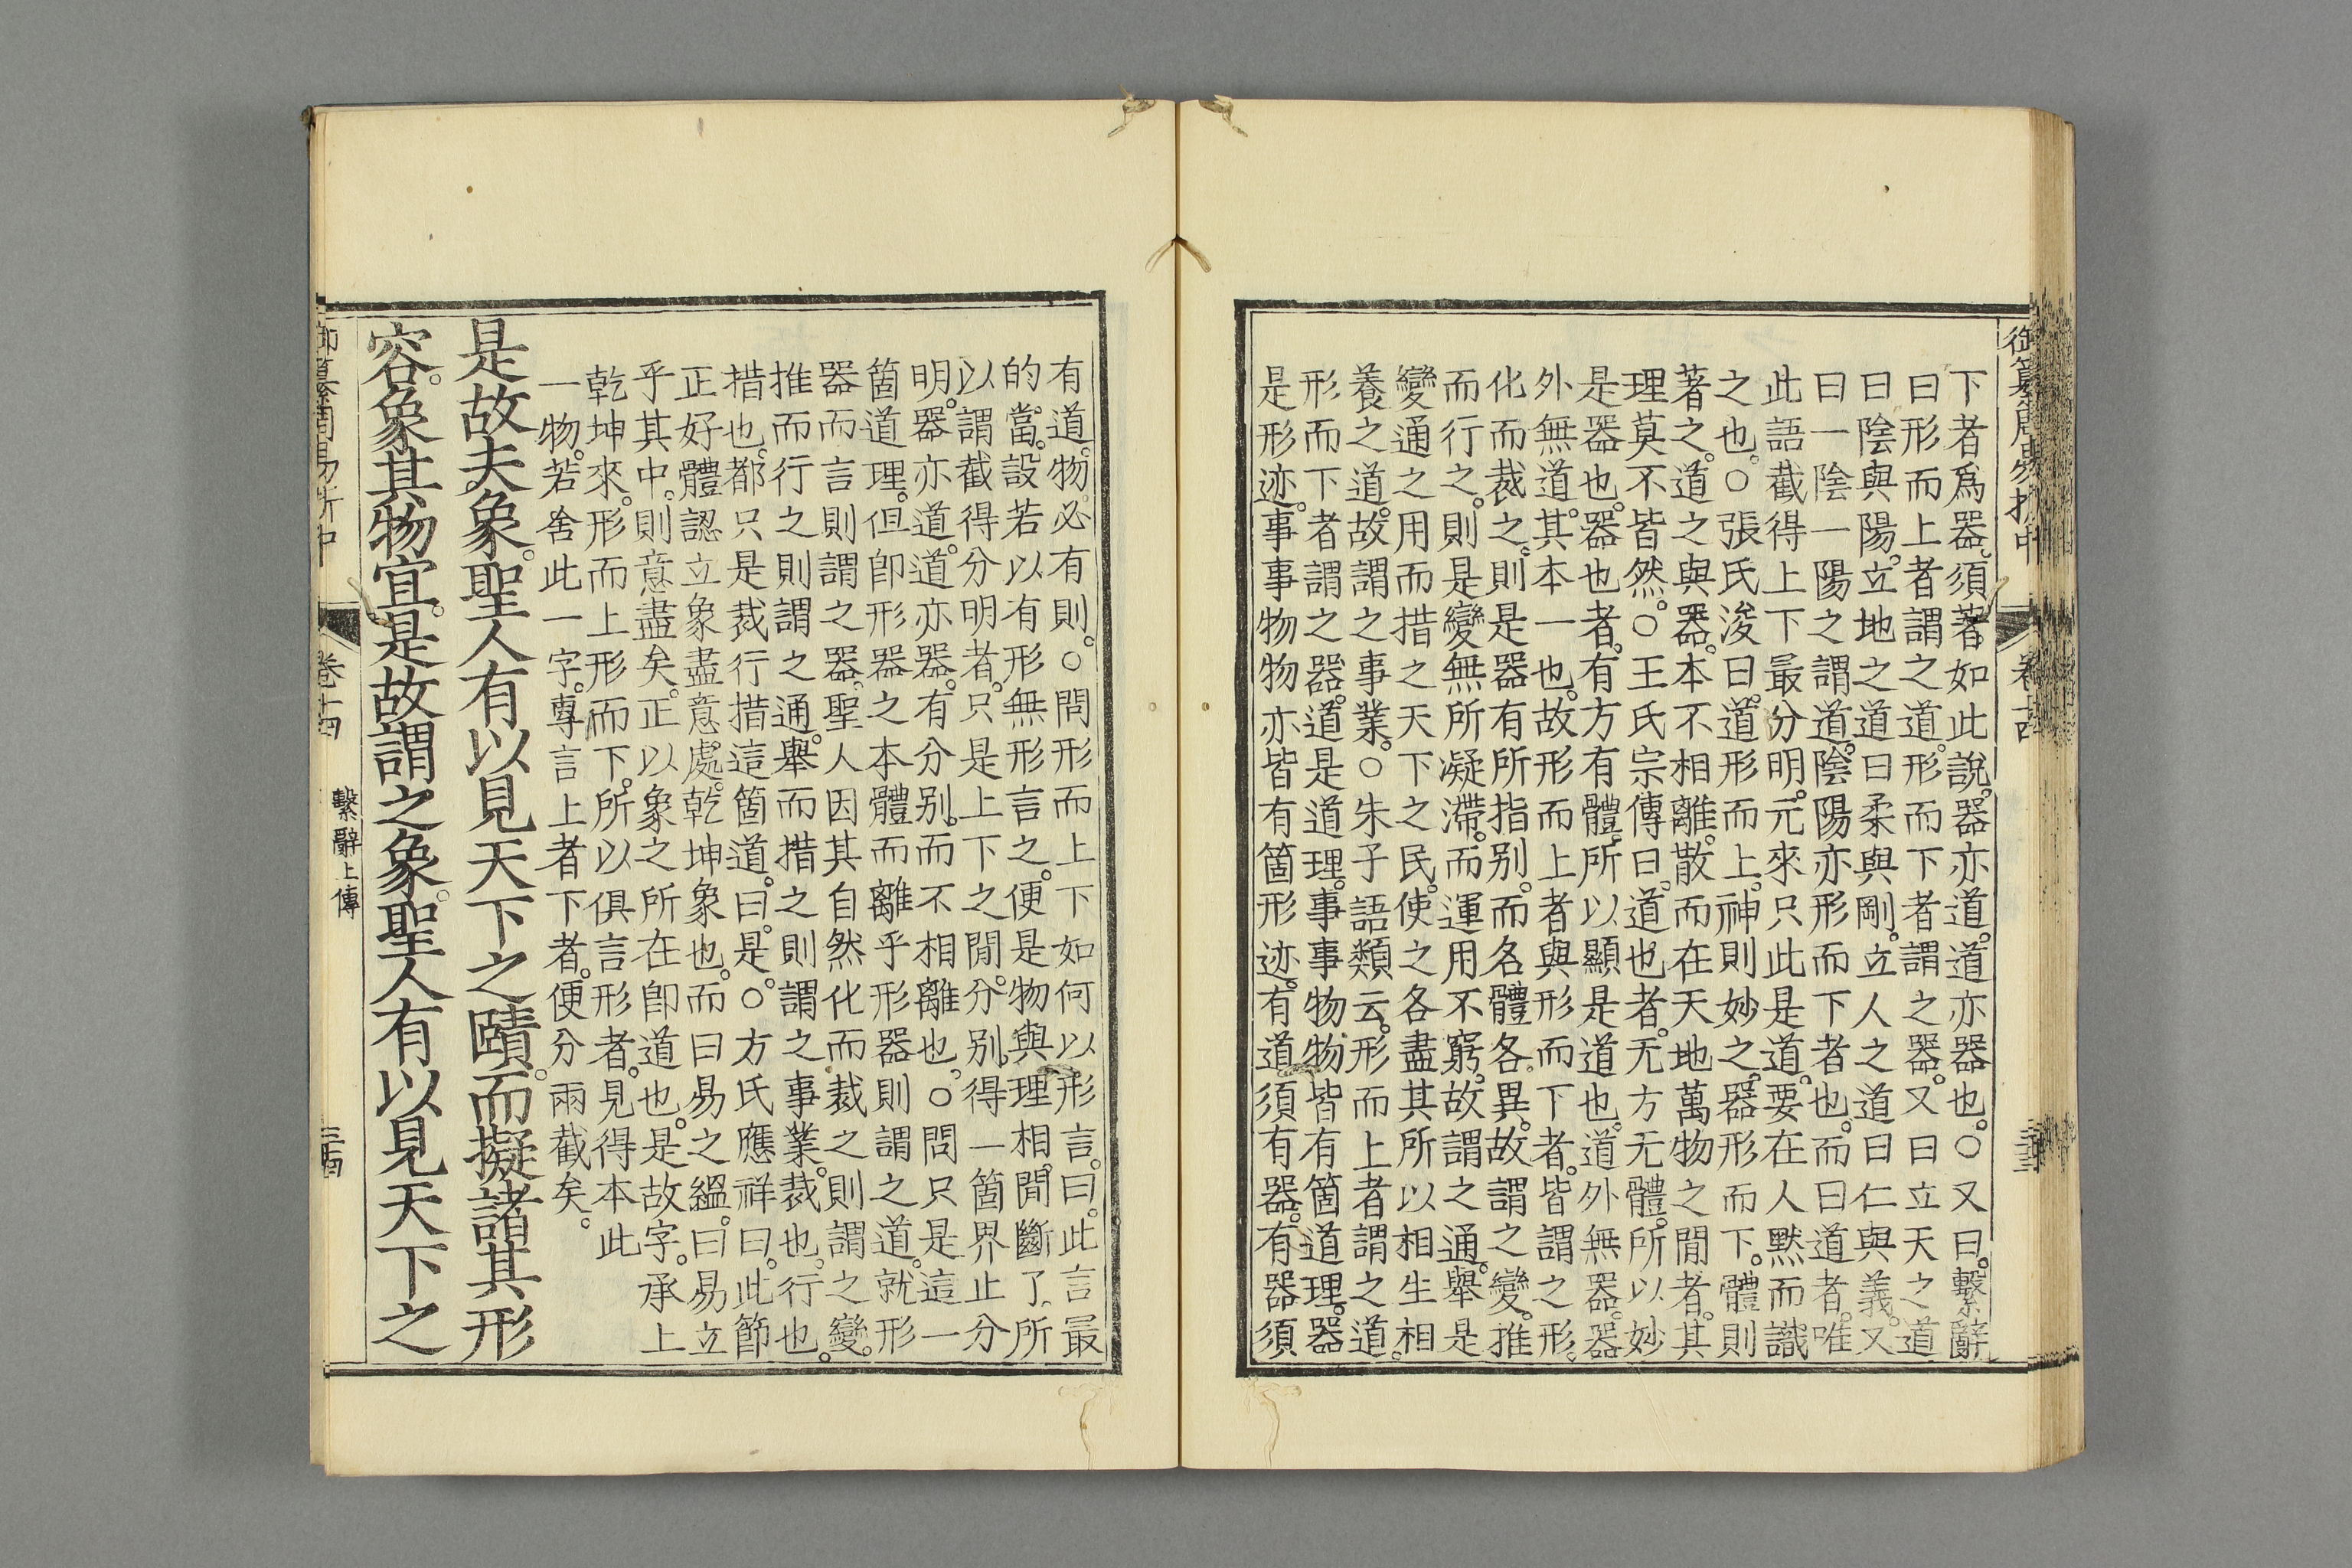 御纂周易折中
卷十四
下者爲器。須著如此說。器亦道。道亦器也。○又曰。繫辭
曰形而上者謂之道。形而下者謂之器。又曰立天之道
曰陰與陽。立地之道曰柔與剛。立人之道曰仁與義。又
曰一陰一陽之謂道。陰陽亦形而下者也。而曰道者。唯
此語截得上下最分明。元來只此是道。要在人黙而識
之也。○張氏浚曰。道形而上。神則妙之。器形而下。體則
著之。道之與器。本不相離。散而在天地萬物之閒者。其
理莫不皆然。○王氏宗傳曰。道也者。无方无體。所以妙
是器也。器也者。有方有體。所以顯是道也。道外無器。器
外無道。其本一也。故形而上者與形而下者。皆謂之形。
化而裁之。則是器有所指别。而名體各異。故謂之變。推
而行之。則是變無所凝滯。而運用不窮。故謂之通。舉是
變通之用而措之天下之民。使之各盡其所以相生相
養之道。故謂之事業。○朱子語類云。形而上者謂之道。
形而下者謂之器。道是道理。事事物物皆有箇道理。器
是形迹。事事物物亦皆有箇形迹。有道須有器。有器須
有道。物必有則。○問形而上下如何以形言。曰。此言最
的當。設若以有形無形言之。便是物與理相閒斷了。所
以謂截得分明者。只是上下之閒。分别得一箇界止分
明。器亦道。道亦器。有分别。而不相離也。○問只是這一
箇道理。但卽形器之本體而離乎形器則謂之道。就形
器而言則謂之器。聖人因其自然化而裁之則謂之變。
推而行之則謂之通。舉而措之則謂之事業。裁也。行也。
措也。都只是裁行措這箇道。曰。是。○方氏應祥曰。此節
正好體認立象盡意處。乾坤象也。而曰易之縕。曰易立
乎其中。則意盡矣。正以象之所在卽道也。是故字。承上
乾坤來。形而上形而下。所以俱言形者。見得本此
一物。若舍此一字。專言上者下者。便分兩截矣。
是故夫象。聖人有以見天下之賾。而擬諸其形
容。象其物宜。是故謂之象。聖人有以見天下之
卷十四
繫辭上傳